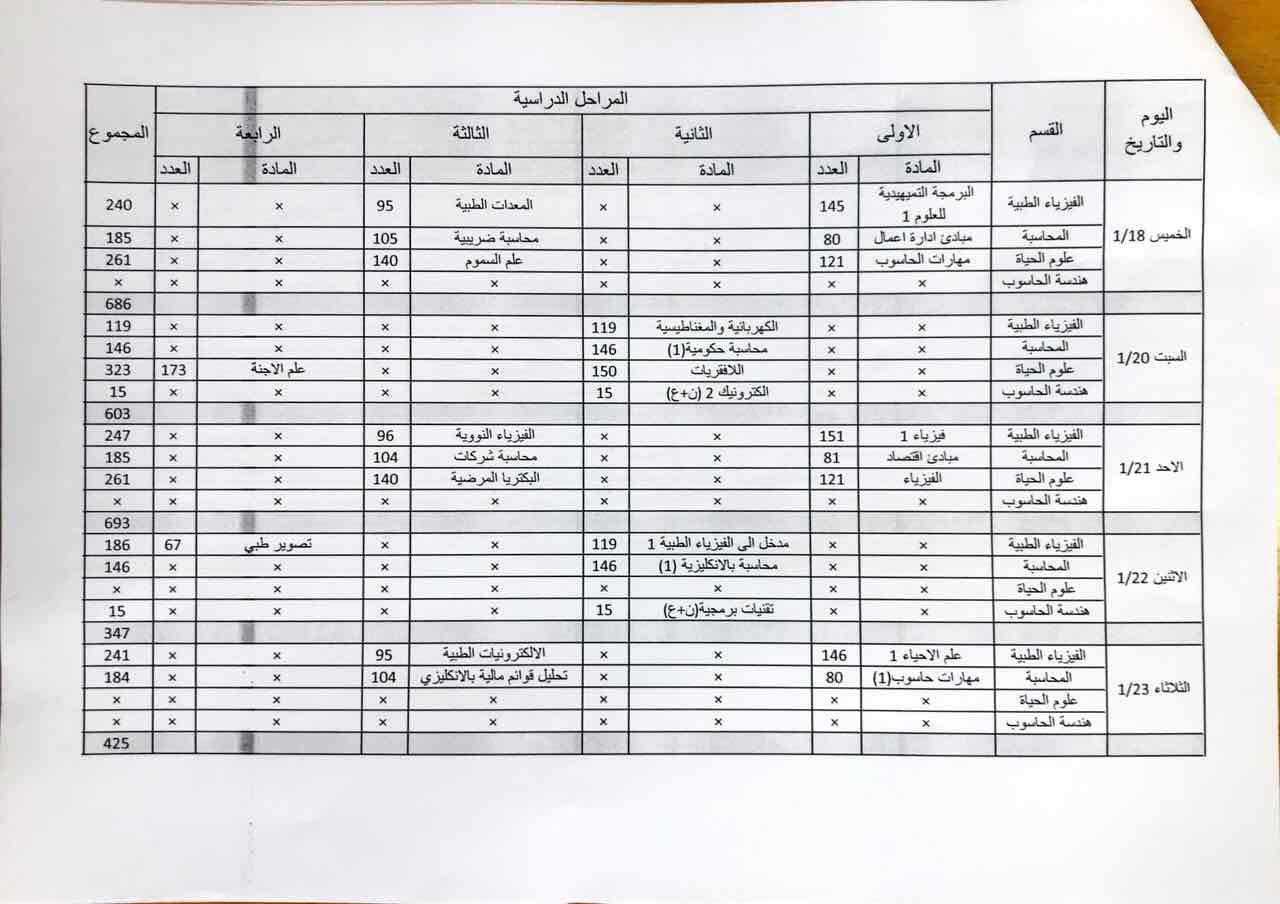 اليوم والتاريخ القسم المراحل الدراسية المجموع
الاولى الثانية الثالثة الرابعة
المادة العدد المادة العدد المادة العدد المادة العدد
الخميس 1/18
الفيزياء الطبية البرمجة التميهيدية للعلوم 1 145 × × المعدات الطبية 95 × × 240
المحاسبة مبادئ ادارة اعمال 80 × × محاسبة ضريبية 105 × × 185
علوم الحياة مهارات الحاسوب 121 × × علم السموم 140 × × 261
هندسة الحاسوب × × × × × × × × ×
686
السبت 1/20
الفيزياء الطبية × × الكهربائية والمغناطيسية 119 × × × × 119
المحاسبة × × محاسبة حكومية(1) 146 × × × × 146
علوم الحياة × × اللافقريات 150 × × علم الاجنة 173 323
هندسة الحاسوب × × الكترونيك 2 (ن+ع) 15 × × × × 15
603
الاحد 1/21
الفيزياء الطبية فيزياء 1 151 × × الفيزياء النووية 96 × × 247
المحاسبة مبادئ اقتصاد 81 × × محاسبة شركات 104 × × 185
علوم الحياة الفيزياء 121 × × البكتريا المرضية 140 × × 261
هندسة الحاسوب × × × × × × × × ×
693
الاثنين 1/22
الفيزياء الطبية × × مدخل الى الفيزياء الطبية 1 119 × × تصوير طبي 67 186
المحاسبة × × محاسبة بالانكليزية (1) 146 × × × × 146
علوم الحياة × × × × × × × × ×
هندسة الحاسوب × × تقنيات برمجية(ن+ع) 15 × × × × 15
347
الثلاثاء 1/23
الفيزياء الطبية علم الاحياء 1 146 × × الالكترونيات الطبية 95 × × 241
المحاسبة مهارات حاسوب(1) 80 × × تحليل قوائم مالية بالانكليزي 104 × × 184
علوم الحياة × × × × × × × × ×
هندسة الحاسوب × × × × × × × × ×
425